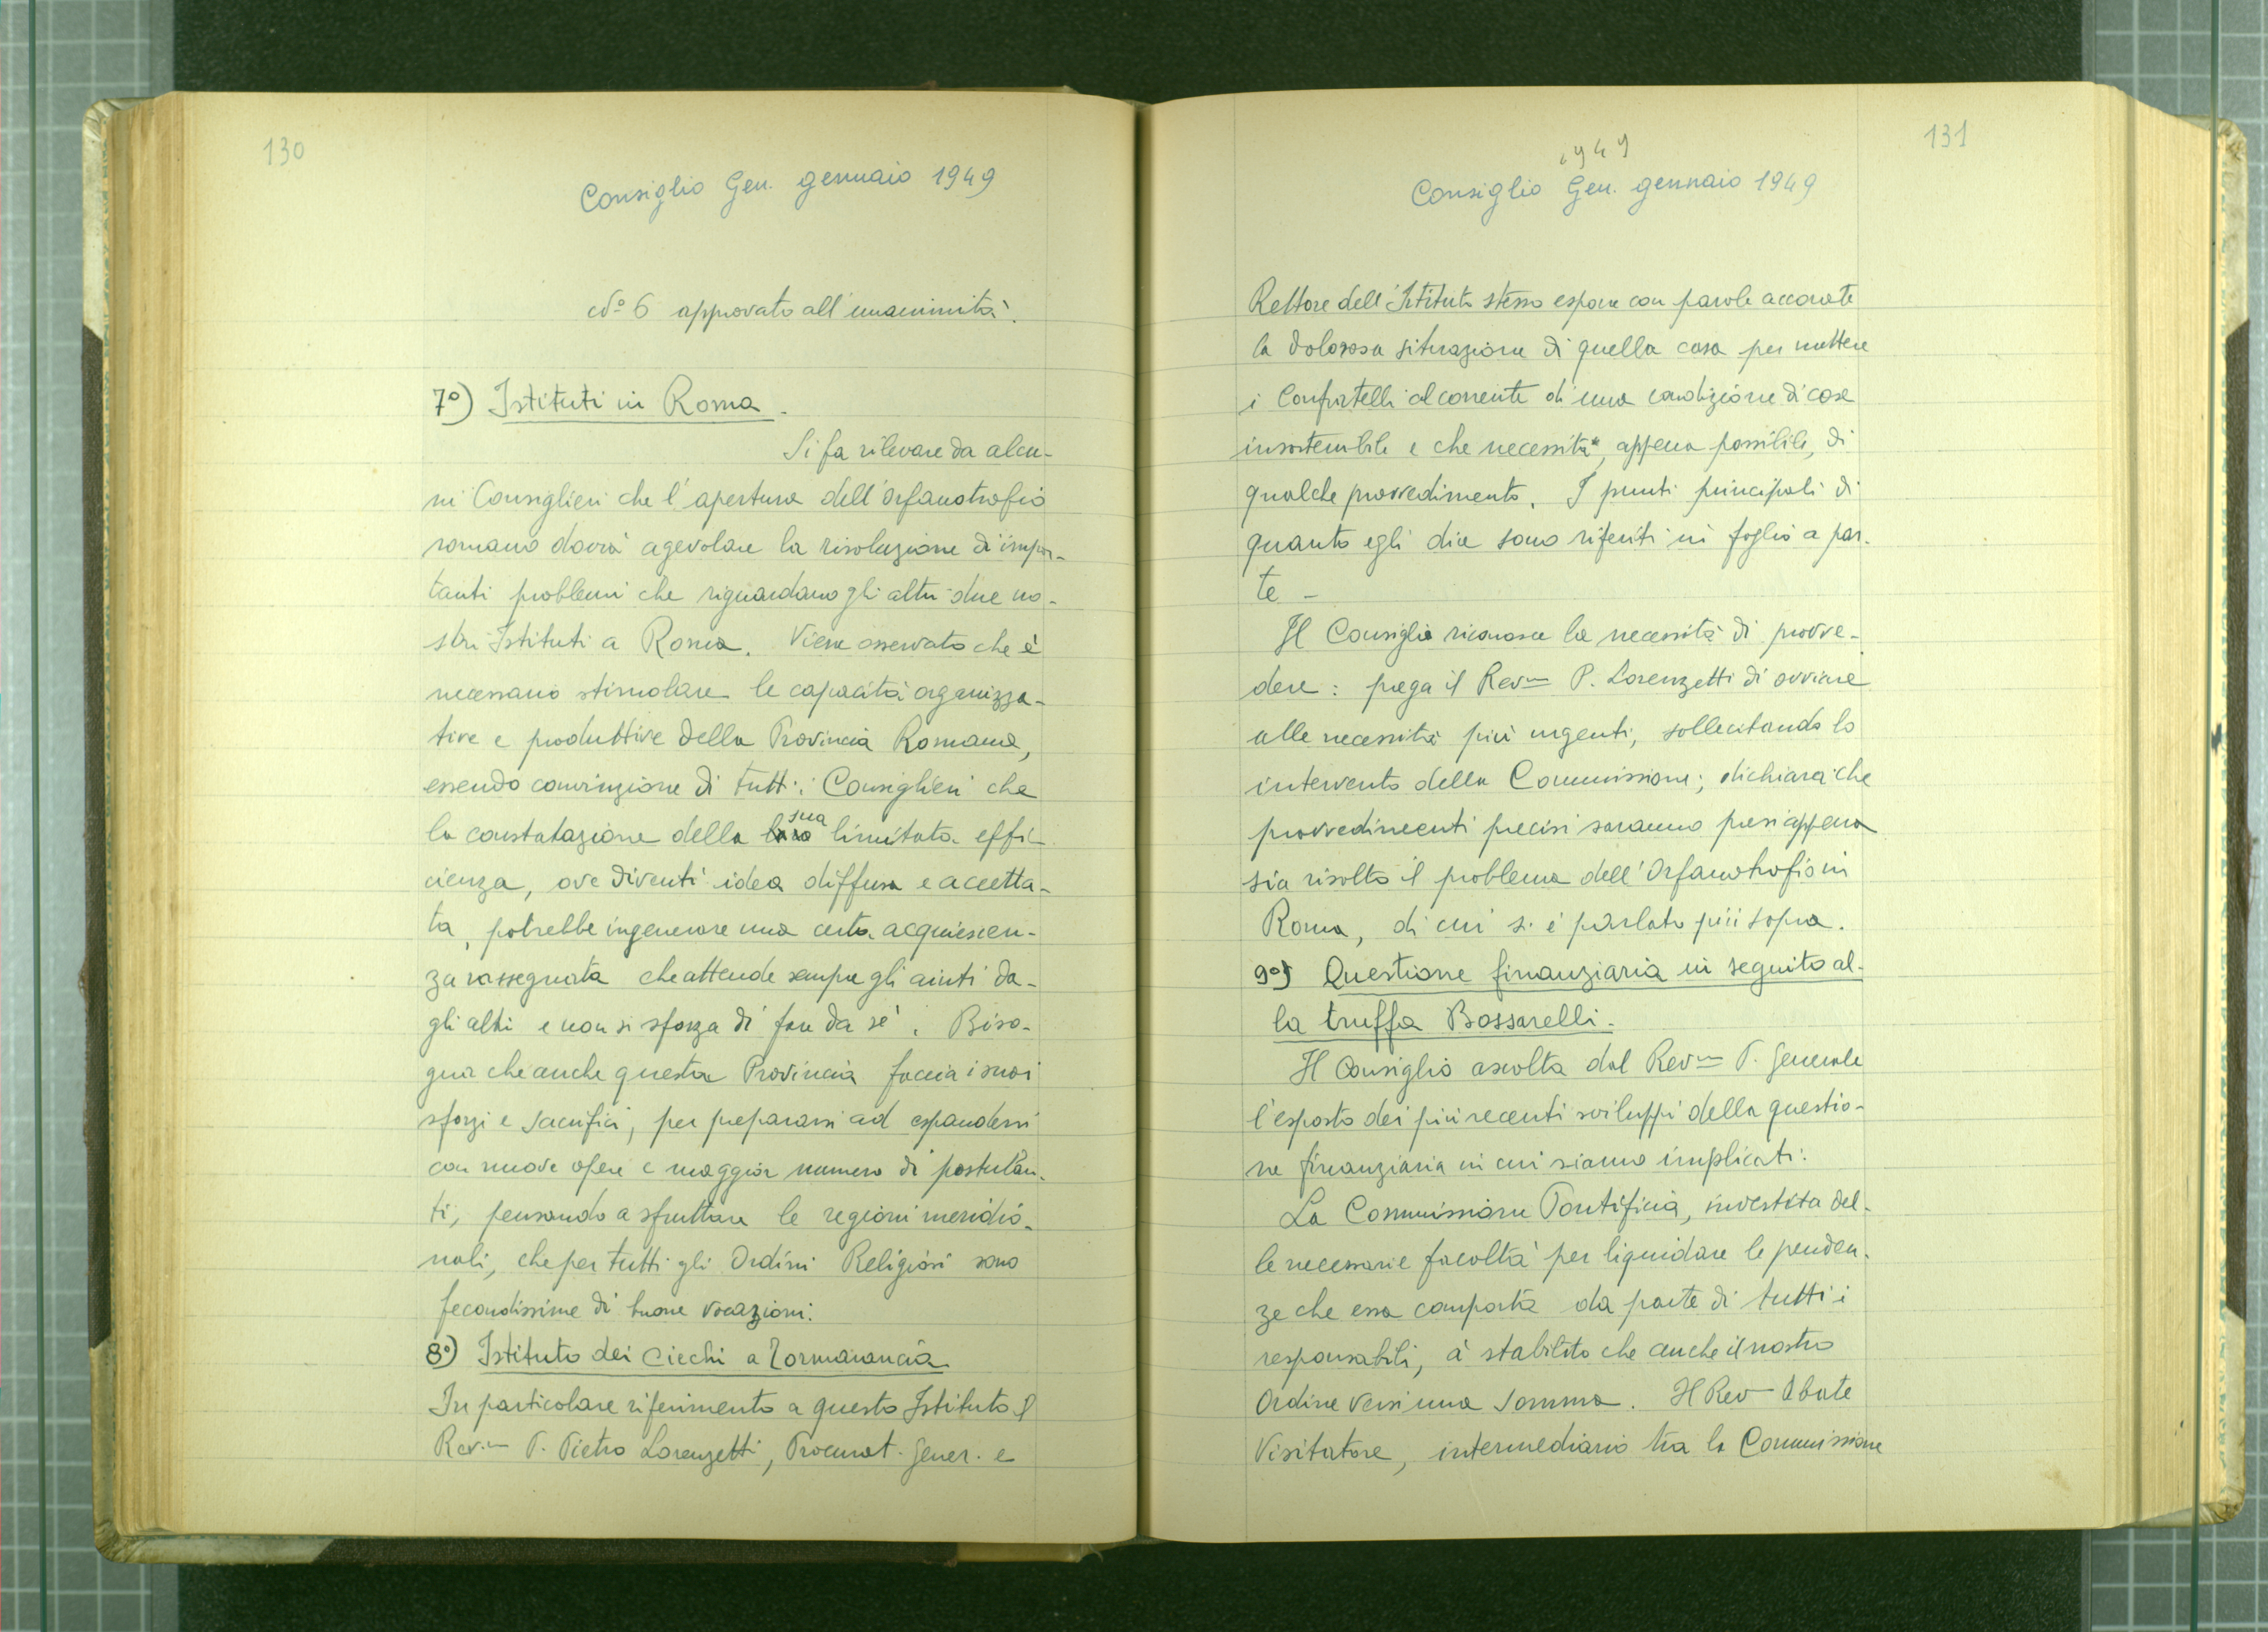 130
Consiglio Gen. gennaio 1949
N° 6 approvato all'unanimità.
7°) Istituti in Roma.
Si fa rilevare da alcu-
ni Consiglieri che l'apertura dell'Orfanotrofio
romano dovrà agevolare la risoluzione di impor-
tanti problemi che riguardano gli altri due no-
stri Istituti a Roma. Viene osservato che è
necessario stimolare le capacità organizza-
tive e produttive della Provincia Romana,
essendo convinzione di tutti i Consiglieri che
la constatazione della loro sua limitata effi-
cienza, ove diventi idea diffusa e accetta-
ta, potrebbe ingenerare una certa acquiescen-
za rassegnata che attende sempre gli aiuti da-
gli altri e non si sforza di fare da sé. Biso-
gna che anche questa Provincia faccia i suoi
sforzi e sacrifici, per prepararsi ad espandersi
con nuove opere e maggior numero di postulan-
ti, pensando a sfruttare le regioni meridio-
nali, che per tutti gli Ordini Religiosi sono
fecondissime di buone vocazioni.
8°) Istituto dei ciechi a Tormarancia
In particolare riferimento a questo Istituto il
Rev.mo P. Pietro Lorenzetti, Procurat. Gener. e
131
1949
Consiglio Gen. gennaio 1949
Rettore dell'Istituto stesso espone con parole accorate
la dolorosa situazione di quella casa per mettere
i Confratelli al corrente di una condizione di cose
insostenibile e che necessita, appena possibile, di
qualche provvedimento. I punti principali di
quanto egli dice sono riferiti in foglio a par-
te -
Il Consiglio riconosce la necessità di provve-
dere: prega il Revmo P. Lorenzetti di ovviare
alle necessità più urgenti, sollecitando lo
intervento della Commissione; dichiara che
provvedimenti precisi saranno presi appena
sia risolto il problema dell'Orfanotrofio in
Roma, di cui si è parlato più sopra.
9°) Questione finanziaria in seguito al-
la truffa Bossarelli.
Il Consiglio ascolta dal Revmo P. Generale
l'esposto dei più recenti sviluppi della questio-
ne finanziaria in cui siamo implicati:
La Commissione Pontificia, investita del-
le necessarie facoltà per liquidare le penden-
ze che essa comporta da parte di tutti i
responsabili, à stabilito che anche il nostro
Ordine versi una somma. Il Revmo Abate
Visitatore, intermediario tra la Commissione